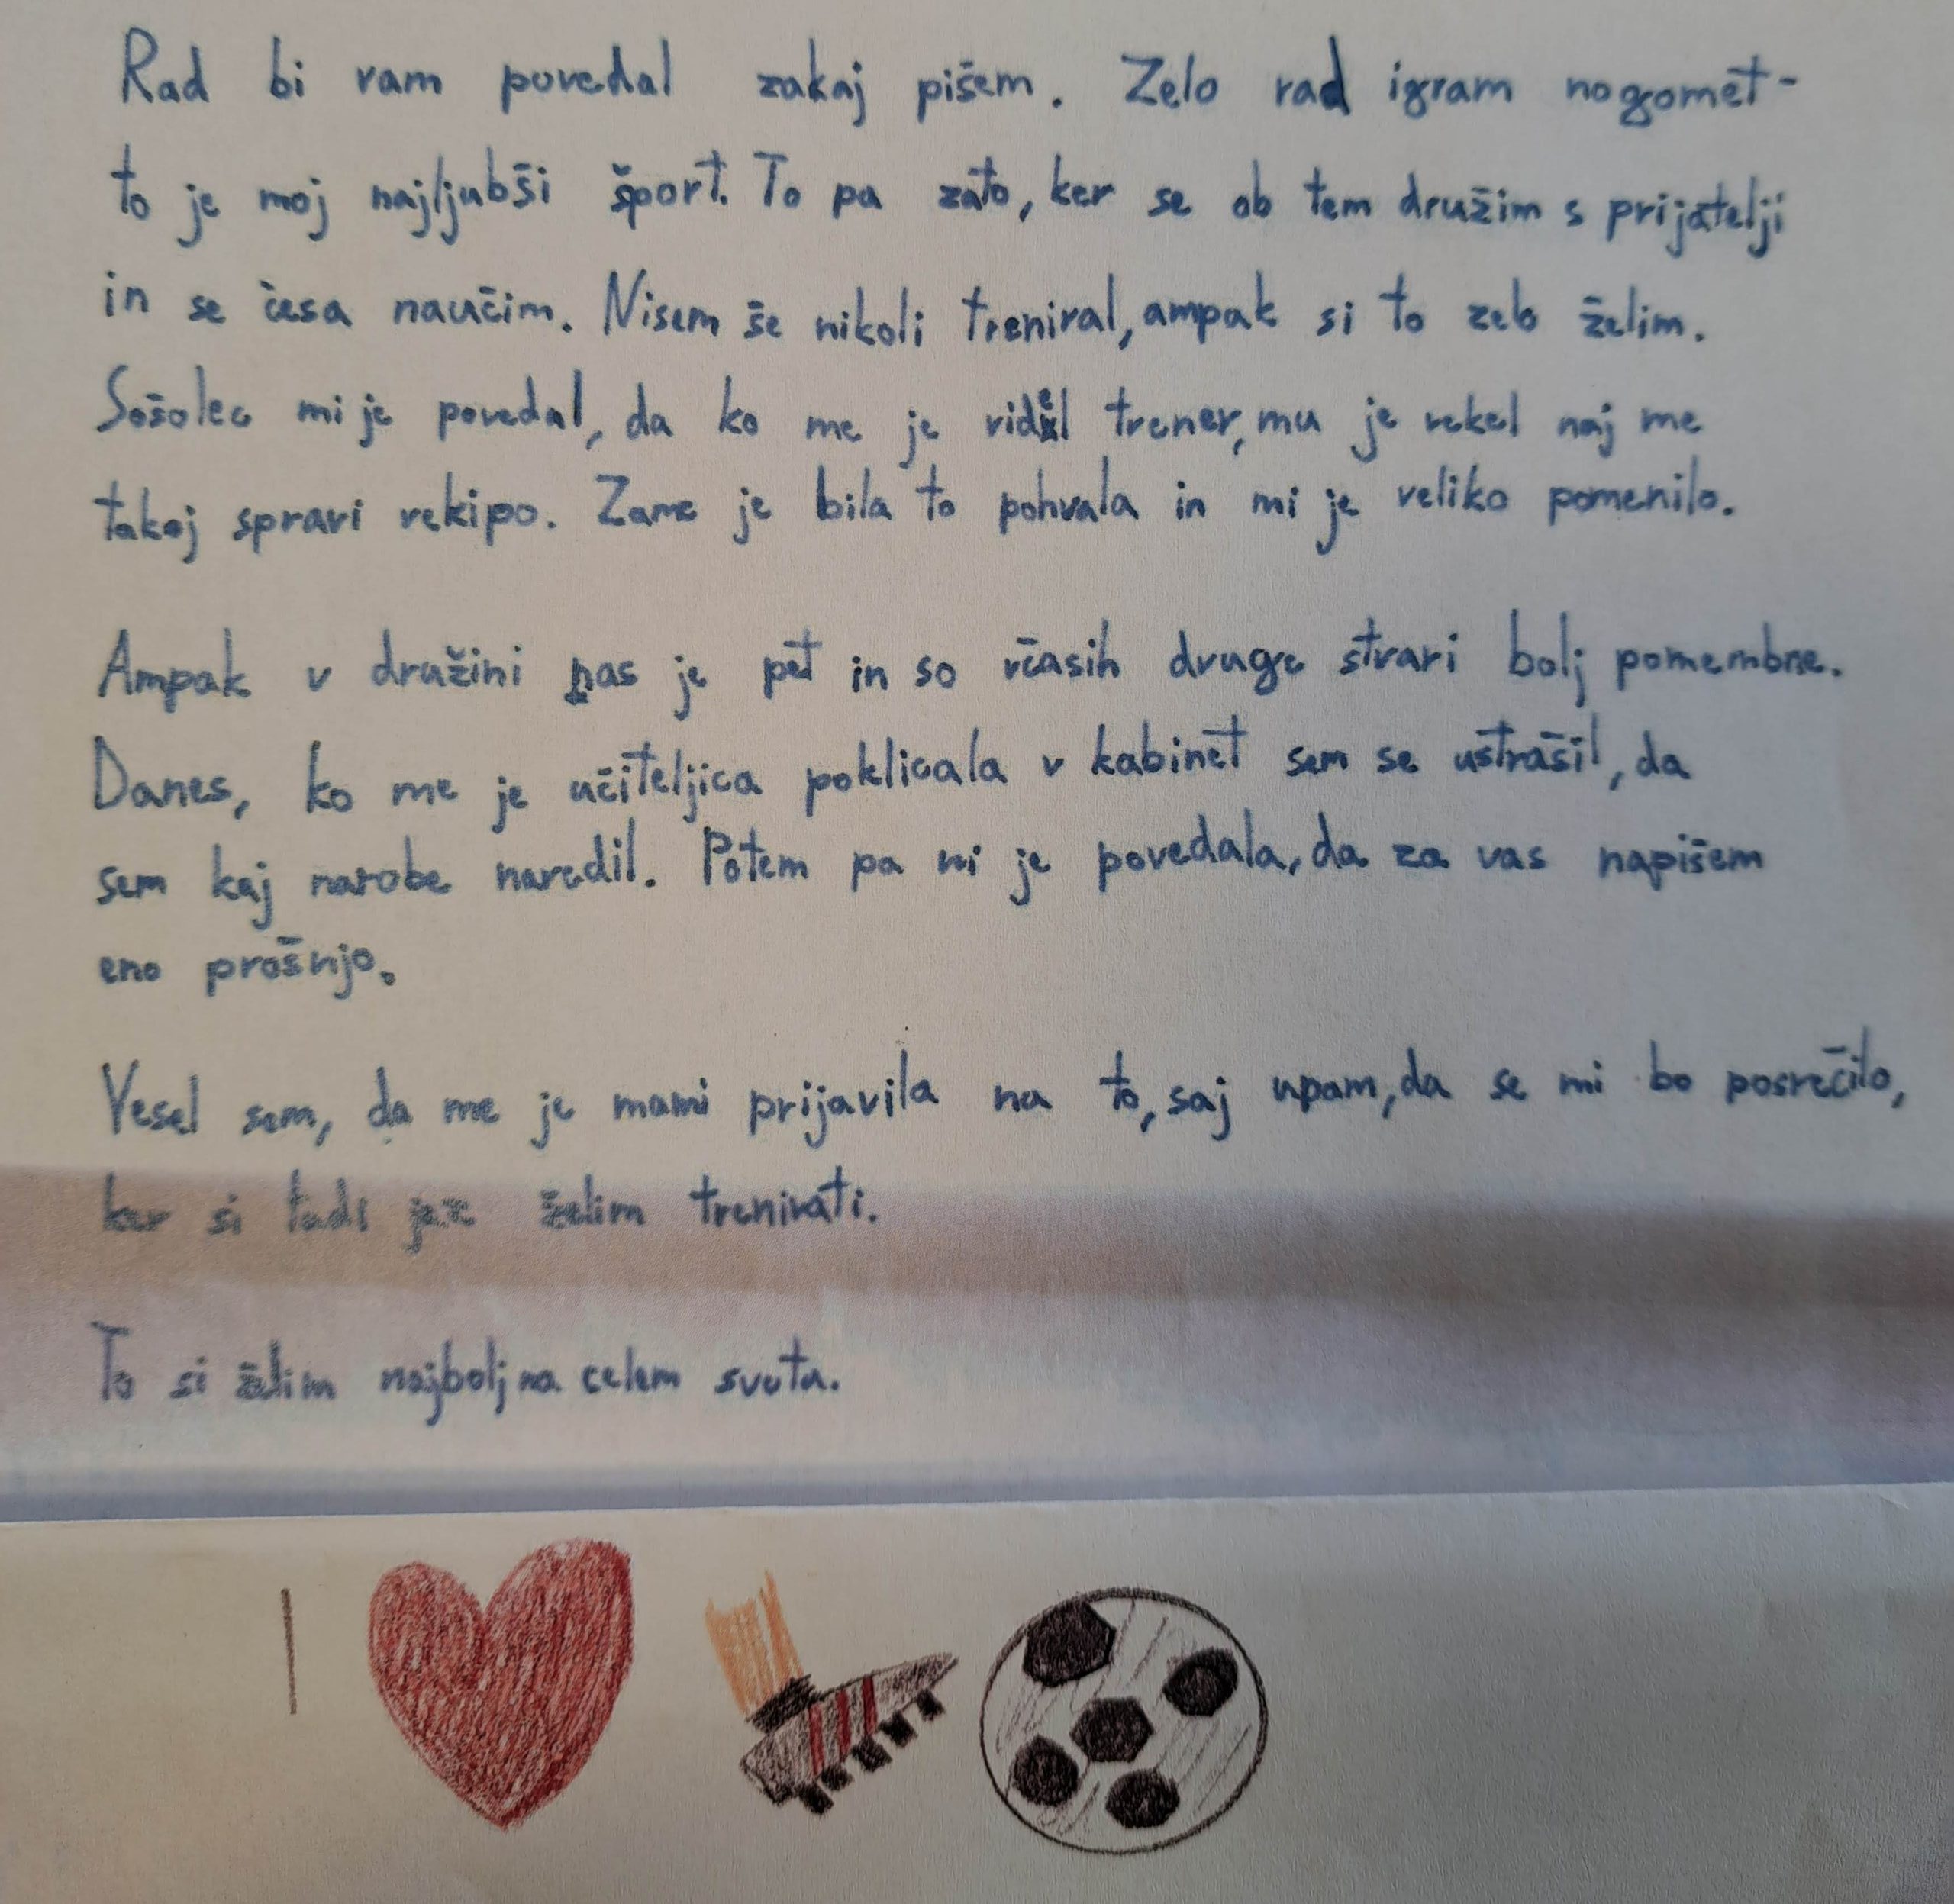 Rad bi vam povedal zakaj pišem. Zelo rad igram nogomet-
to je moj najljubši šport. To pa zato, ker se ob tem družim s prijatelji
in se česa naučim. Nisem še nikoli treniral, ampak si to zelo želim.
Sošolec mi je povedal, da ko me je videl trener, mu je rekel naj me
takoj spravi vekipo. Zame je bila to pohvala in mi je veliko pomenilo.
Ampak v družini nas je pet in so včasih druge stvari bolj pomembne.
Danes, ko me je učiteljica poklicala v kabinet sem se ustrašil, da
sem kaj narobe naredil. Potem pa mi je povedala, da za vas napišem
eno prošnjo.
Vesel sem, da me je mami prijavila na to, saj upam, da se mi bo posrečilo,
ker si tudi jaz želim trenirati.
To si želim najbolj na celem svetu.
I